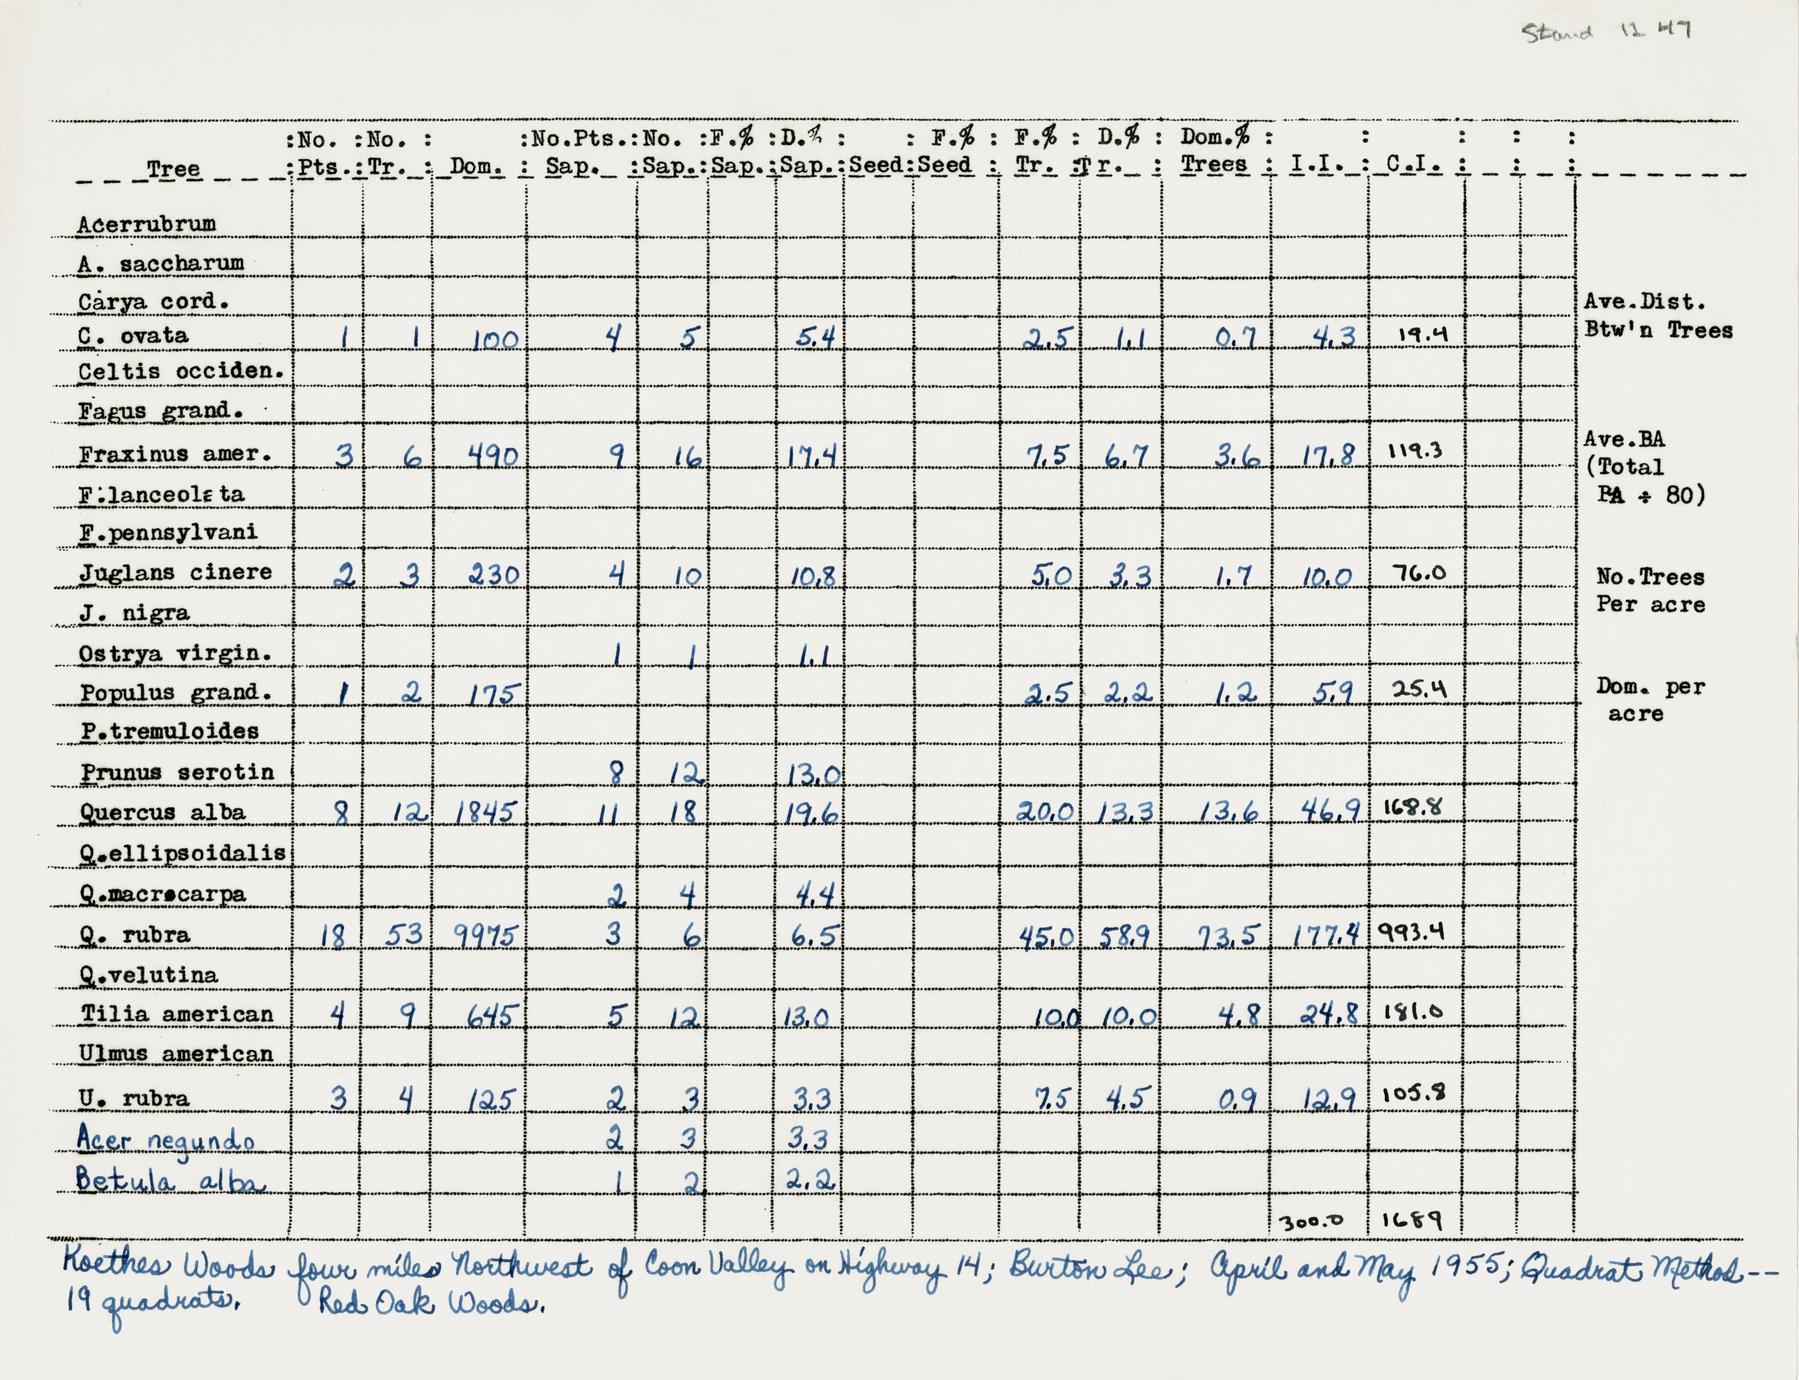 Stand 1147
:No. :No. : :No.Pts.:No. :F.% :D.% : : F.% : F.% : D.% : Dom.% : : : :
Tree :Pts.:Tr. : Dom. : Sap. :Sap.:Sap.:Sap.:Seed:Seed : Tr. :Tr. : Trees : I.I. : C.I. : : :
Acerrubrum
A. saccharum
Carya cord.
Ave.Dist.
C. ovata 1 1 100 4 5 5.4 2.5 1.1 0.7 4.3 19.4 Btw'n Trees
Celtis occiden.
Fagus grand.
Ave.BA
Fraxinus amer. 3 6 490 9 16 17.4 7.5 6.7 3.6 17.8 119.3
(Total
F.lanceolata
BA ÷ 80)
F.pennsylvani
Juglans cinere 2 3 230 4 10 10.8 5.0 3.3 1.7 10.0 76.0 No.Trees
J. nigra Per acre
Ostrya virgin. 1 1 1.1
Populus grand. 1 2 175 2.5 2.2 1.2 5.9 25.4 Dom. per
acre
P.tremuloides
Prunus serotin 8 12 13.0
Quercus alba 8 12 1845 11 18 19.6 20.0 13.3 13.6 46.9 168.8
Q.ellipsoidalis
Q.macrocarpa 2 4 4.4
Q. rubra 18 53 9975 3 6 6.5 45.0 58.9 73.5 177.4 993.4
Q.velutina
Tilia american 4 9 645 5 12 13.0 10.0 10.0 4.8 24.8 181.0
Ulmus american
U. rubra 3 4 125 2 3 3.3 7.5 4.5 0.9 12.9 105.8
Acer negundo 2 3 3.3
Betula alba 1 2 2.2
300.0 1689
Koethes Woods four miles Northwest of Coon Valley on Highway 14; Burton Lee; April and May 1955; Quadrat Method--
19 quadrats. Red Oak Woods.